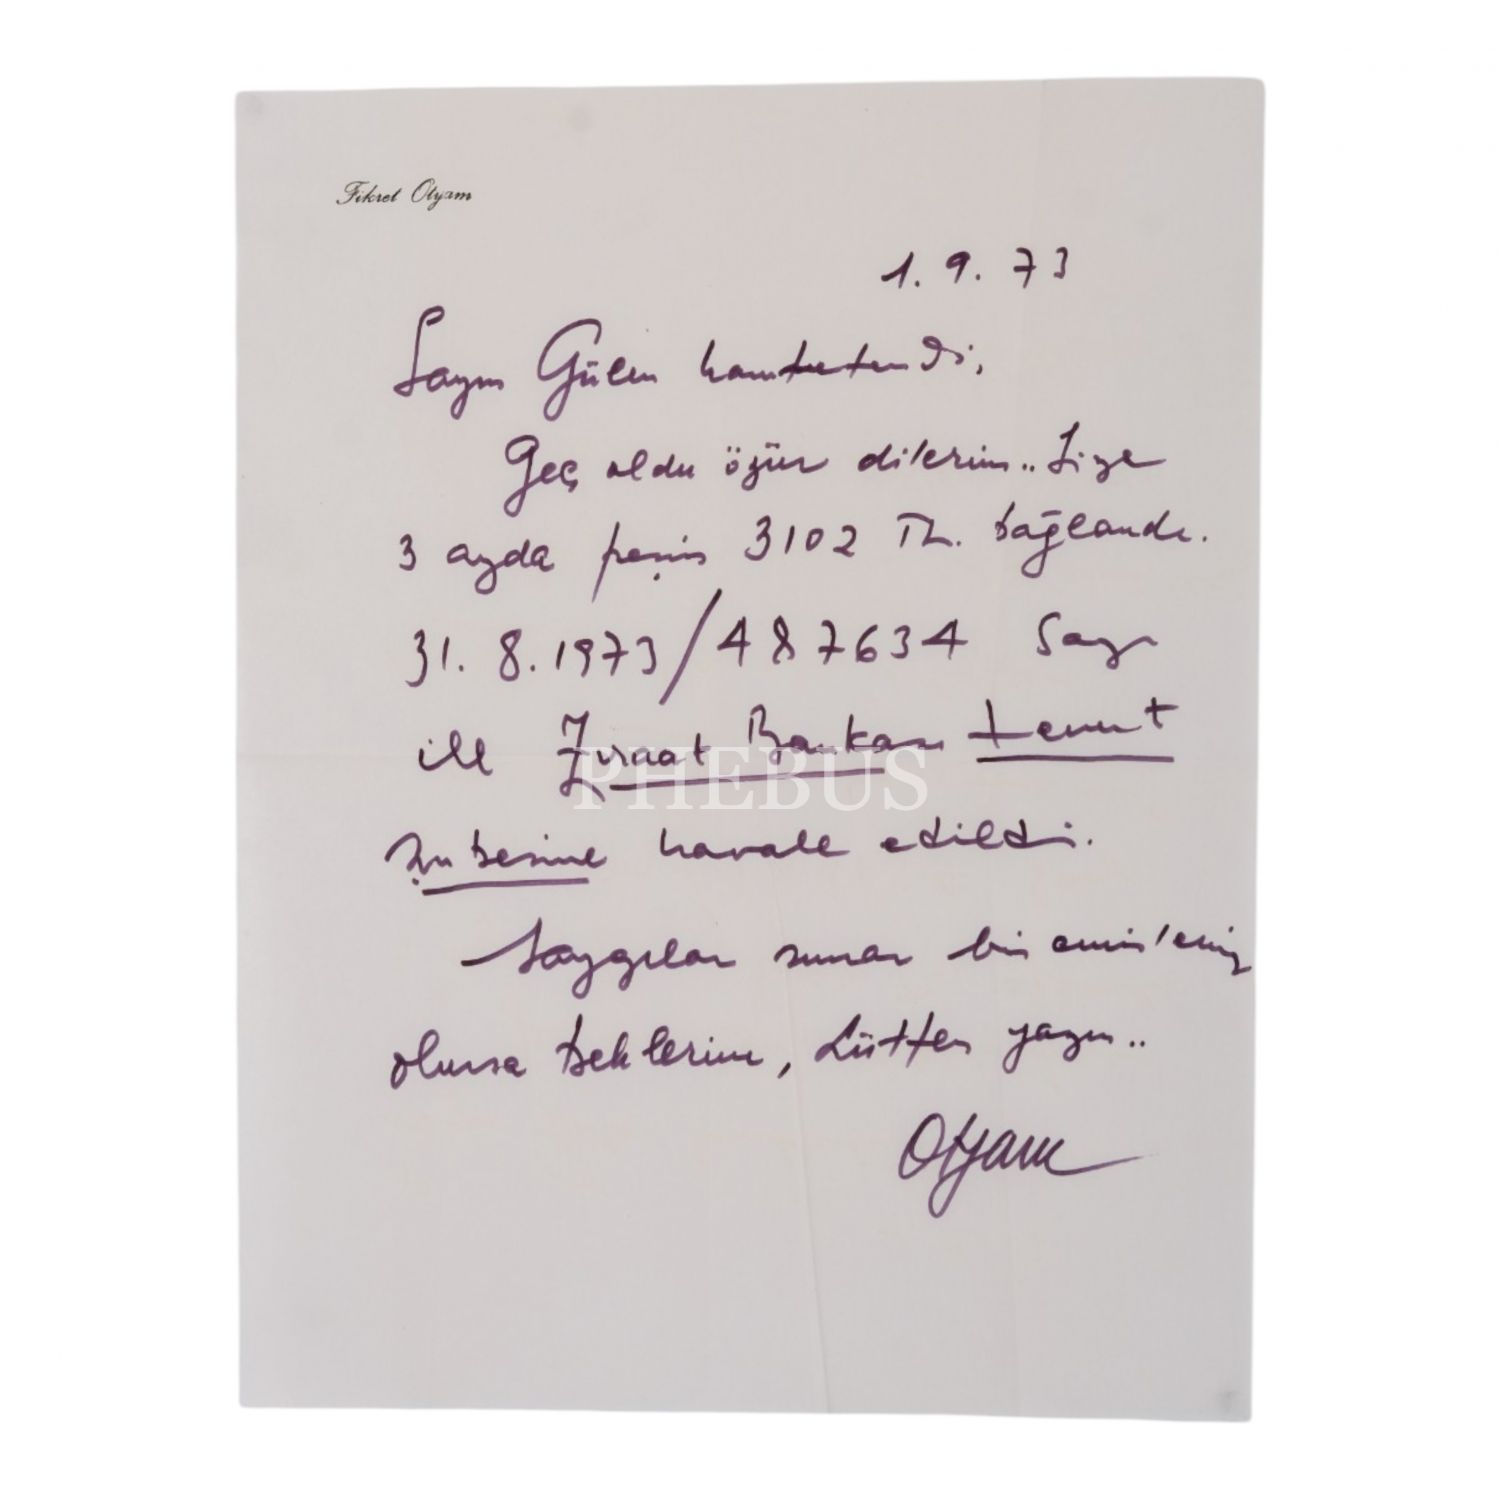 Fikret Otyam
1. 9. 73
Sayın Gülen hanımefendi,
Geç oldu özür dilerim.. Size
3 ayda peşin 3102 TL. bağlandı.
31. 8. 1973/487634 Sayı
ile Ziraat Bankası Levent
Şubesine havale edildi.
Saygılar sunar bir emirleriniz
olursa beklerim, Lütfen yazın..
Otyam
PHEBUS